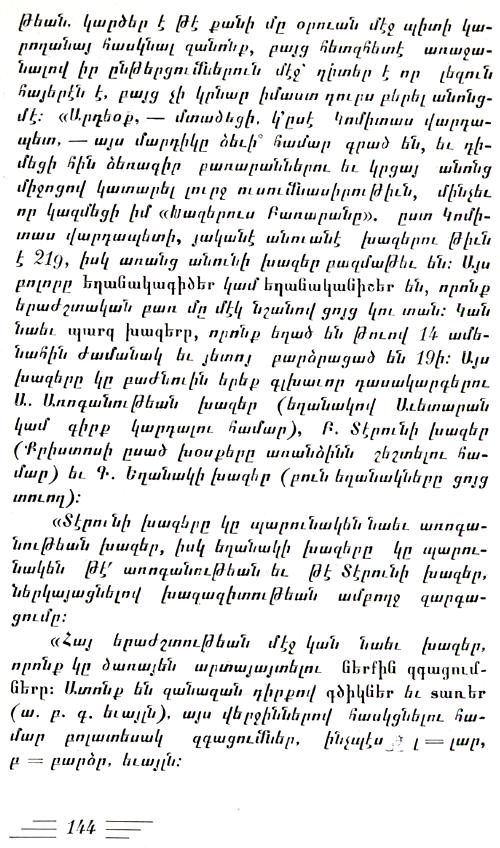 թեան. կարծեր է թէ քանի մը օրուան մէջ պիտի կա-
րողանայ հասկնալ զանոնք, բայց հետզհետէ առաջա-
նալով իր ընթերցումներուն մէջ՝ դիտեր է որ լեզուն
հայերէն է, բայց չի կրնար իմաստ դուրս բերել անոնց-
մէ։ «Արդեօք, — մտածեցի, կ՚ըսէ Կոմիտաս վարդա-
պետ, — այս մարդիկը ձեւի՞ համար գրած են, եւ դի-
մեցի հին ձեռագիր բառարաններու եւ կրցայ անոնց
միջոցով կատարել լուրջ ուսումնասիրութիւն, մինչեւ
որ կազմեցի իմ «Խազերուս Բառարանը». ըստ Կոմի-
տաս վարդապետի, յականէ անուանէ խազերու թիւն
է 219, իսկ առանց անունի խազեր բազմաթեւ են։ Այս
բոլորը եղանակագիծեր կամ եղանականիշեր են, որոնք
երաժշտական բառ մը մէկ նշանով ցոյց կու տան։ Կան
նաեւ պարզ խազերր, որոնք եղած են թուով 14 ամե-
նահին ժամանակ եւ յետոյ բարձրացած են 19ի։ Այս
խազերը կը բաժնուին երեք գլխաւոր դասակարգերու
Ա. Առոգանութեան խազեր (եղանակով Աւետարան
կամ գիրք կարդալու համար), Բ. Տէրունի խազեր
(Քրիստոսի ըսած խօսքերը առանձինն շեշտելու հա-
մար) եւ Գ. Եղանակի խազեր (բուն եղանակները ցոյց
տուող)։
«Տէրունի խազերը կը պարունակեն նաեւ առոգա-
նութեան խազեր, իսկ եղանակի խազերը կը պարու-
նակեն թէ՛ առոգանութեան եւ թէ Տէրունի խազեր,
ներկայացնելով խազագիտութեան ամբողջ զարգա-
ցումը։
«Հայ երաժշտութեան մէջ կան նաեւ խազեր,
որոնք կը ծառայեն արտայայտելու ներքին զգացում-
ները։ Ատոնք են զանազան դիրքով գծիկներ եւ տառեր
(ա. բ. գ. եւայլն), այս վերջիններով հասկցնելու հա-
մար բոլատեսակ զգացումներ, ինչպէս լ = լար,
բ = բարձր, եւայլն։
144